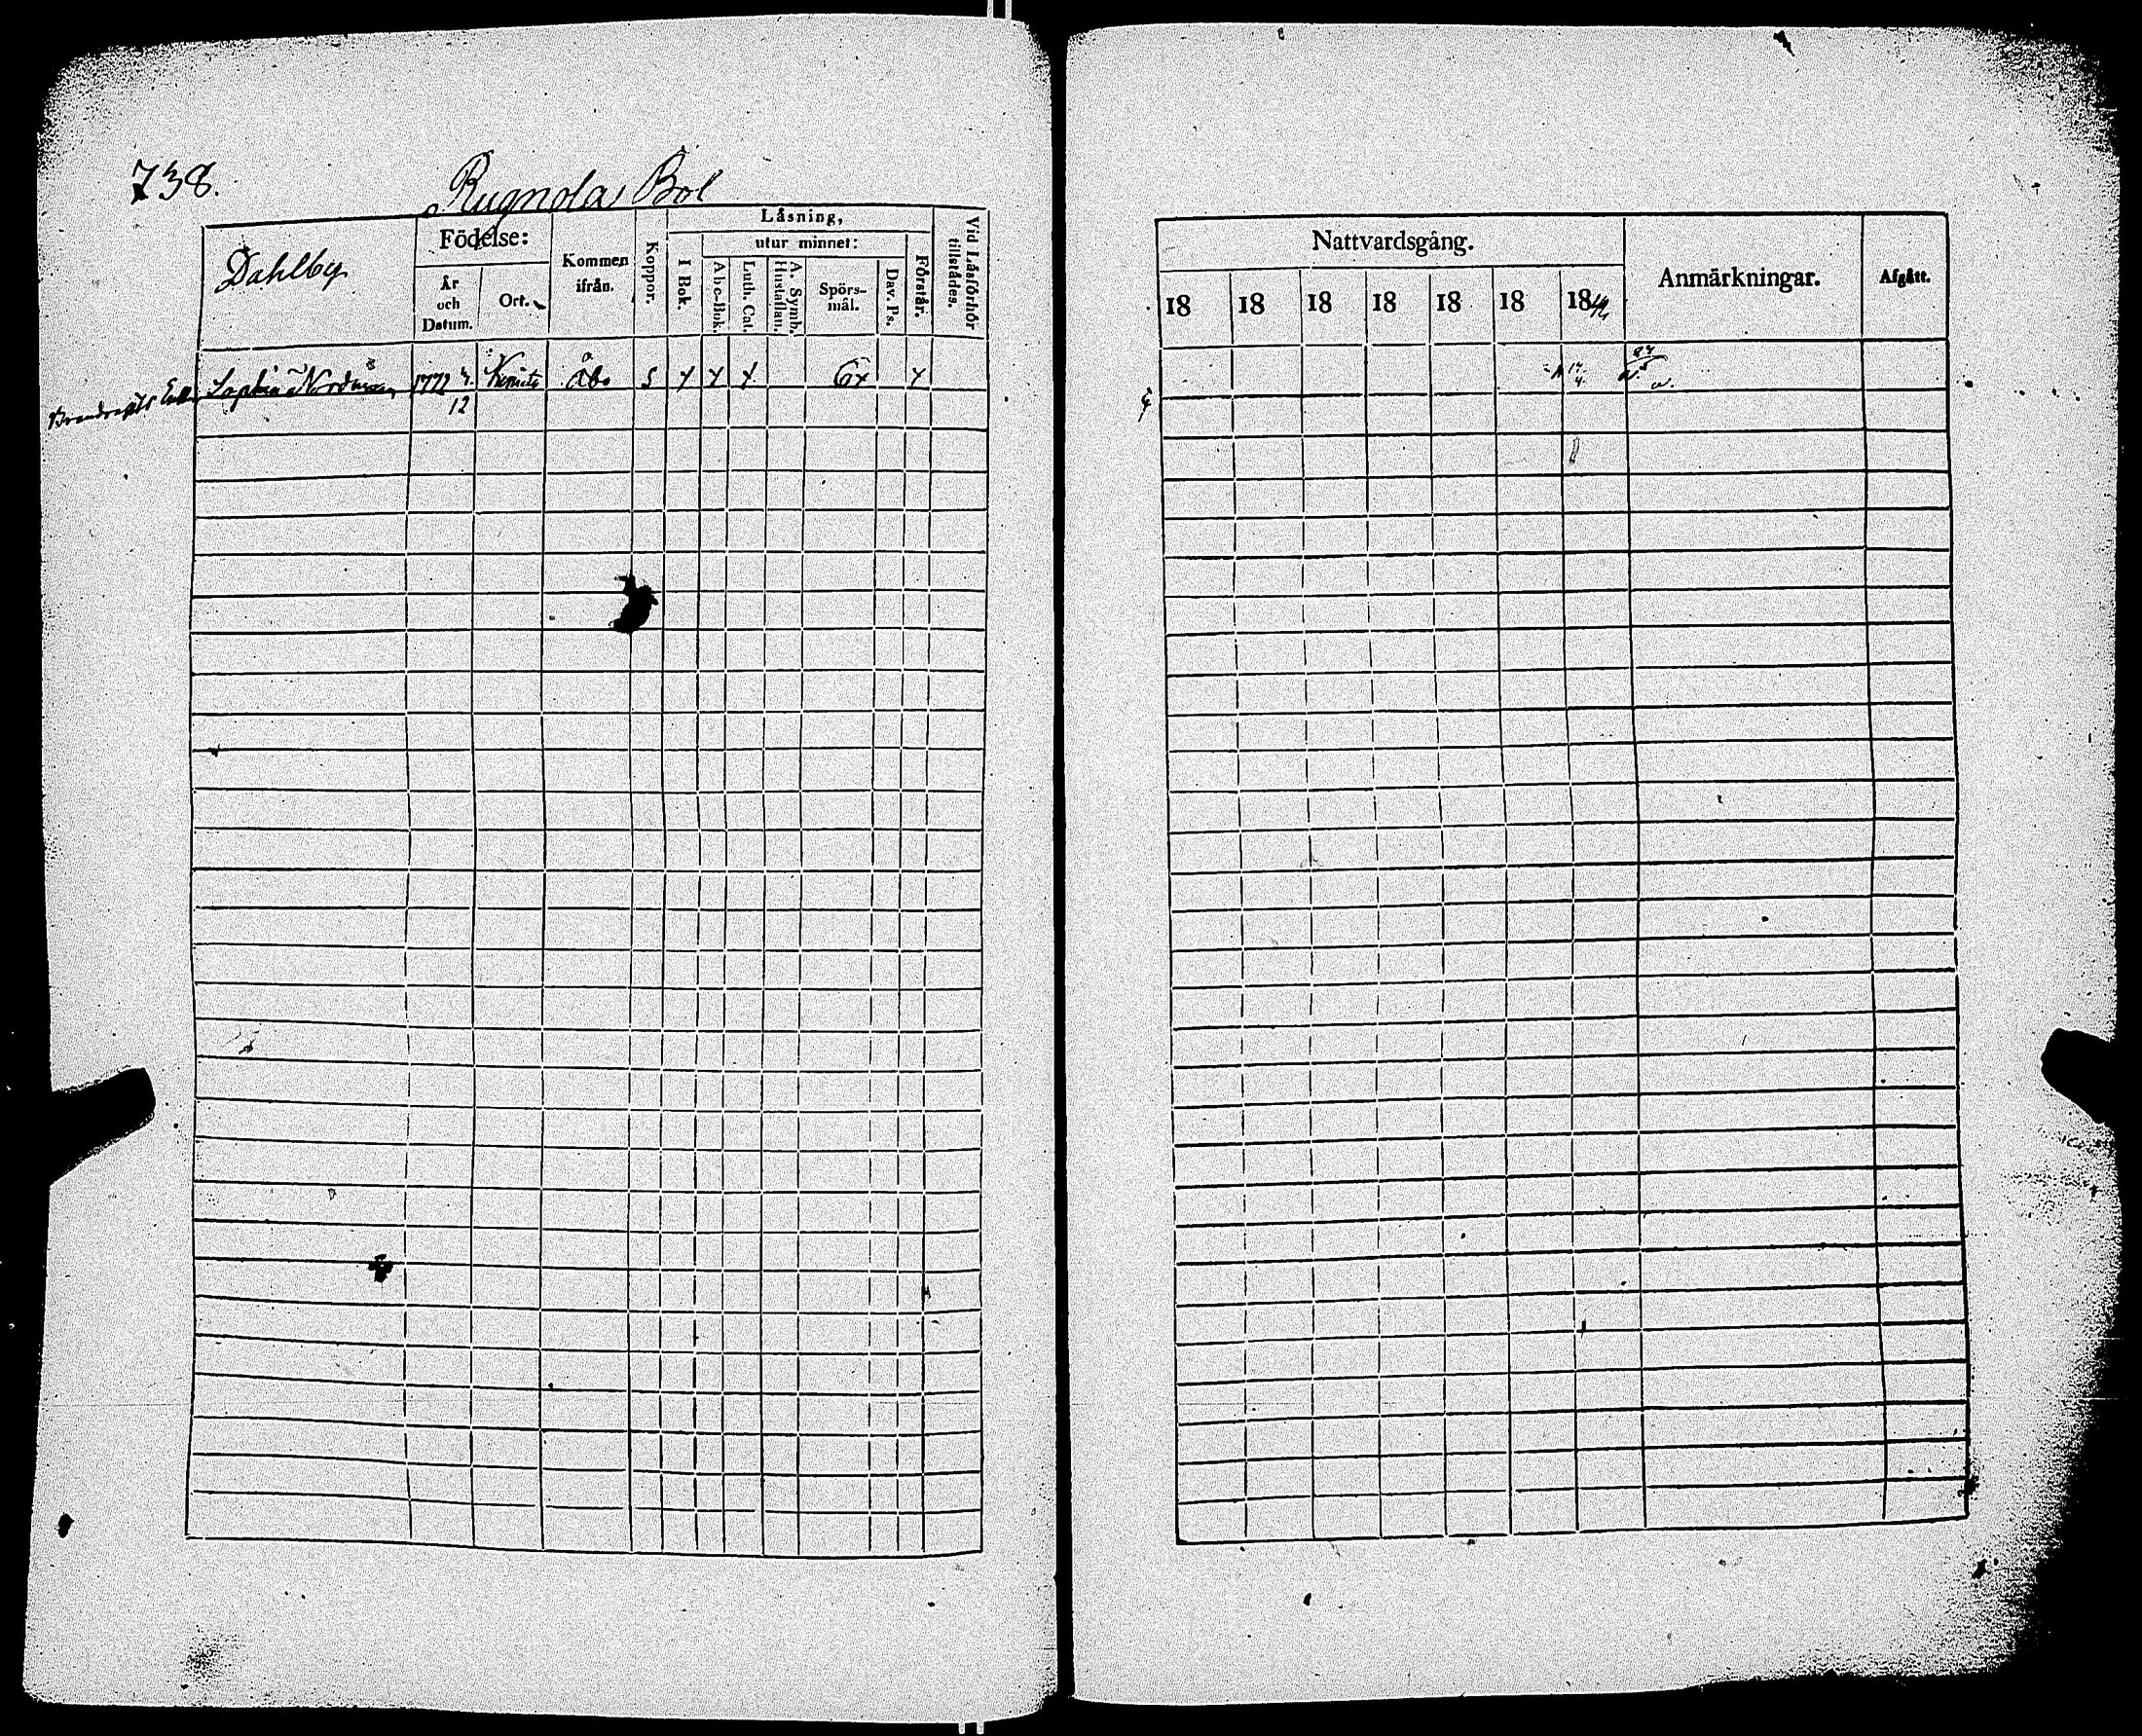 738.
Rugnola Bol
Dahlby
Födelse:
År och Datum.
Ort.
Kommen ifrån.
Koppor.
Läsning,
I Bok.
utur minnet:
Abc-Bok.
Luth. Cat.
A. Symb. Hustaflan.
Spörs-mål.
Dav. Ps.
Förstår.
Vid Läsförhör tillstädes.
Sophia Nordman 1772 Kimito Åbo
12
Nattvardsgång.
18 18 18 18 18 18 18
Anmärkningar.
Afgått.